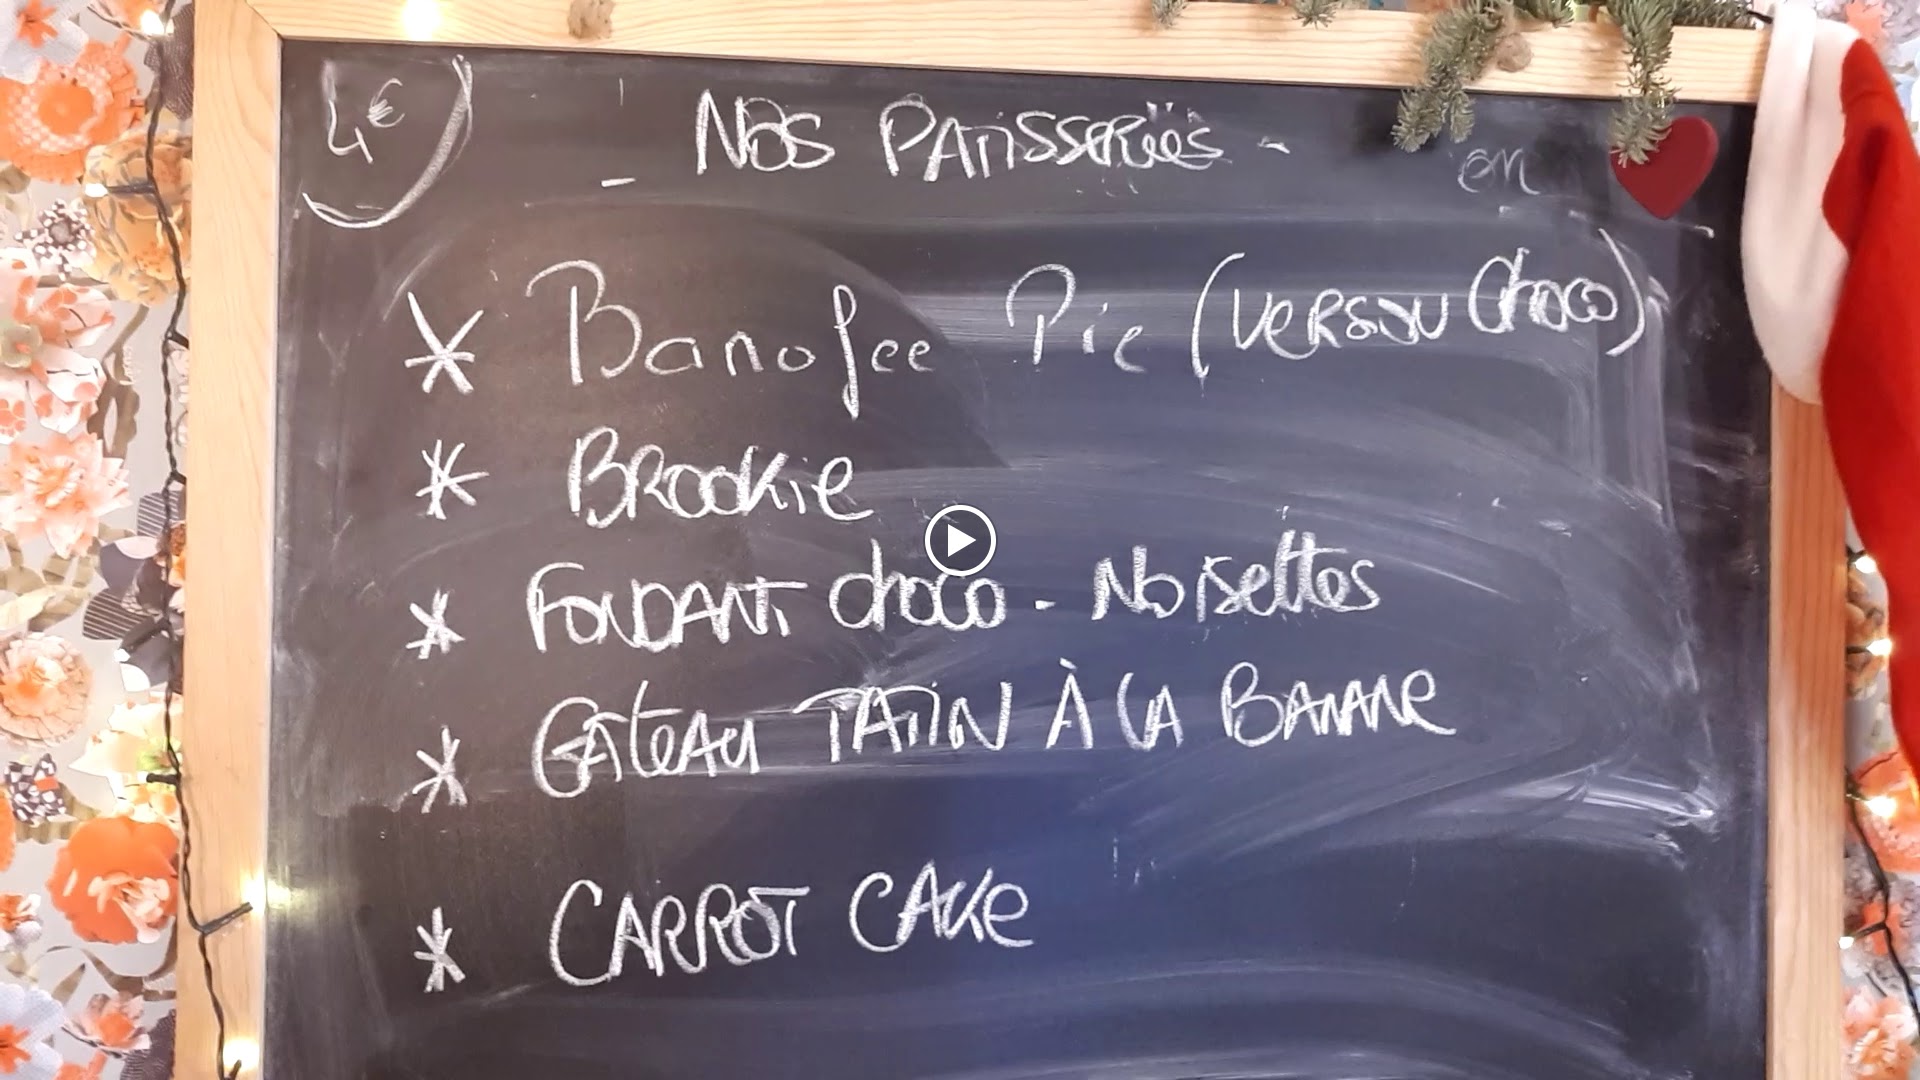 4€
- NOS PATISSERIES -
en
* Banofee Pie (VERSION CHOCO)
* BROOKIE
* FONDANT CHOCO - NOISETTES
* GÂTEAU TATIN À LA BANANE
* CARROT CAKE